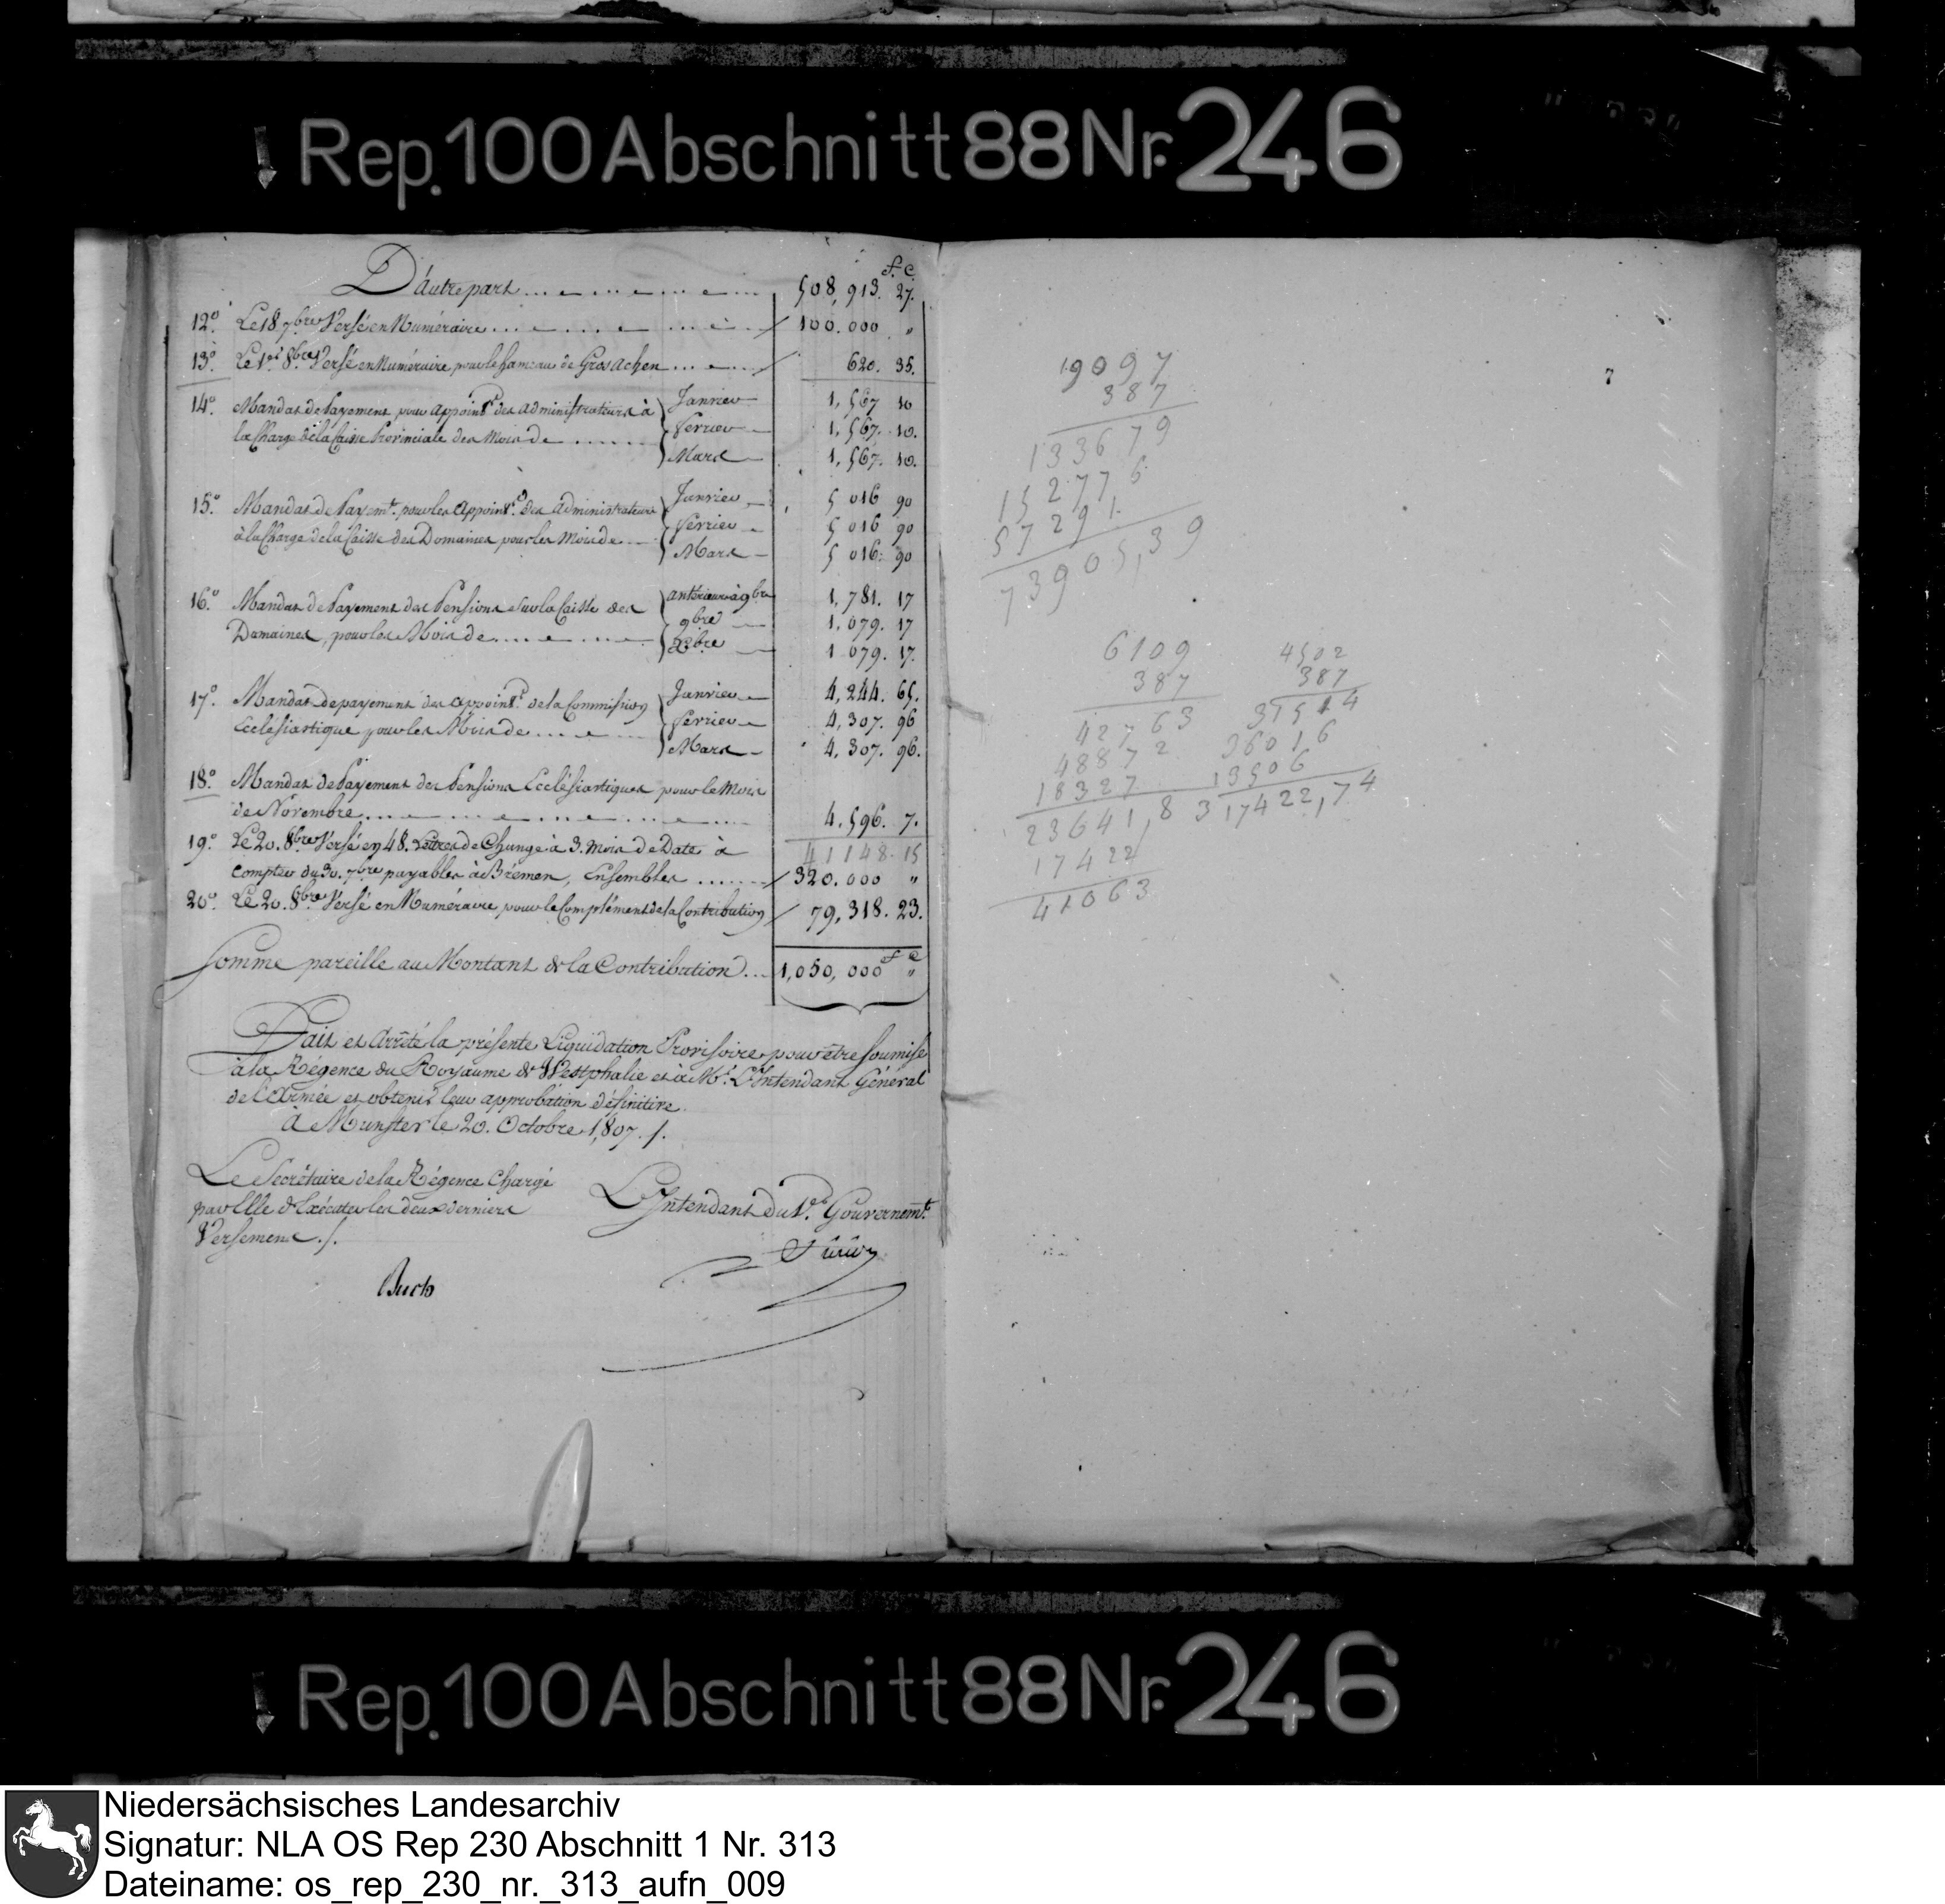 Rep. 100 Abschnitt 88 Nr. 246
D'autre part ... 508,913. 27.
f. c.
12.° Le 18 7bre Versé en Numéraire ... 100.000 "
13.° Le 1er 8bre Versé en Numéraire pour le hameau de Gros Achen ... 620. 35.
14.° Mandat de Payement pour appoint.s des administrateurs à
la Charge de la Caisse Provinciale des Mois de ......
Janvier 1,567 10
Fevrier 1,567. 10.
Mars 1,567. 10.
15.° Mandat de Payem.t pour les appoint.s des administrateurs
à la Charge de la Caisse des Domaines pour les Mois de
Janvier 5 016 90
Fevrier 5 016 90
Mars 5 016: 90
16.° Mandat de Payement des Pensions sur la Caisse des
Domaines, pour les Mois de
antérieurs à 9bre 1,781. 17
9bre 1,079. 17
Xbre 1 079. 17.
17.° Mandat de payement des appoint.s de la Commission
Ecclésiastique pour les Mois de
Janvier 4,244. 65.
Fevrier 4,307. 96
Mars 4,307. 96.
18.° Mandat de Payement des Pensions Ecclésiastiques pour le Mois
de Novembre ... 4.596. 7.
41148.15
19.° Le 20. 8bre Versé en 48. Lettres de Change à 3. Mois de Date à
compter du 30. 7bre payables à Brémen, Ensembles ....... 320.000 "
20.° Le 20. 8bre Versé en Numéraire pour le Complément de la Contribution 79,318. 23.
Somme pareille au Montant de la Contribution ... 1,050,000 "
f c
Fait et Arrêté la présente Liquidation Provisoire pour être soumise
à la Régence du Royaume de Westphalie et à Mr. L'Intendant Général
de l'Armée et obtenir leur approbation définitive.
à Munster le 20. Octobre 1807. /.
Le Secrétaire de la Régence Chargé
par Elle d'Exécuter les deux derniers
Versemens ./.
Buch
L'Intendant du 1.er Gouvernem.t
7
19097
387
133679
152776
57291
73905,39
6109
387
42763
48872
18327
23641,83
17422
41063
4502
387
31514
36016
13506
17422,74
Rep. 100 Abschnitt 88 Nr. 246
Niedersächsisches Landesarchiv
Signatur: NLA OS Rep 230 Abschnitt 1 Nr. 313
Dateiname: os_rep_230_nr._313_aufn_009